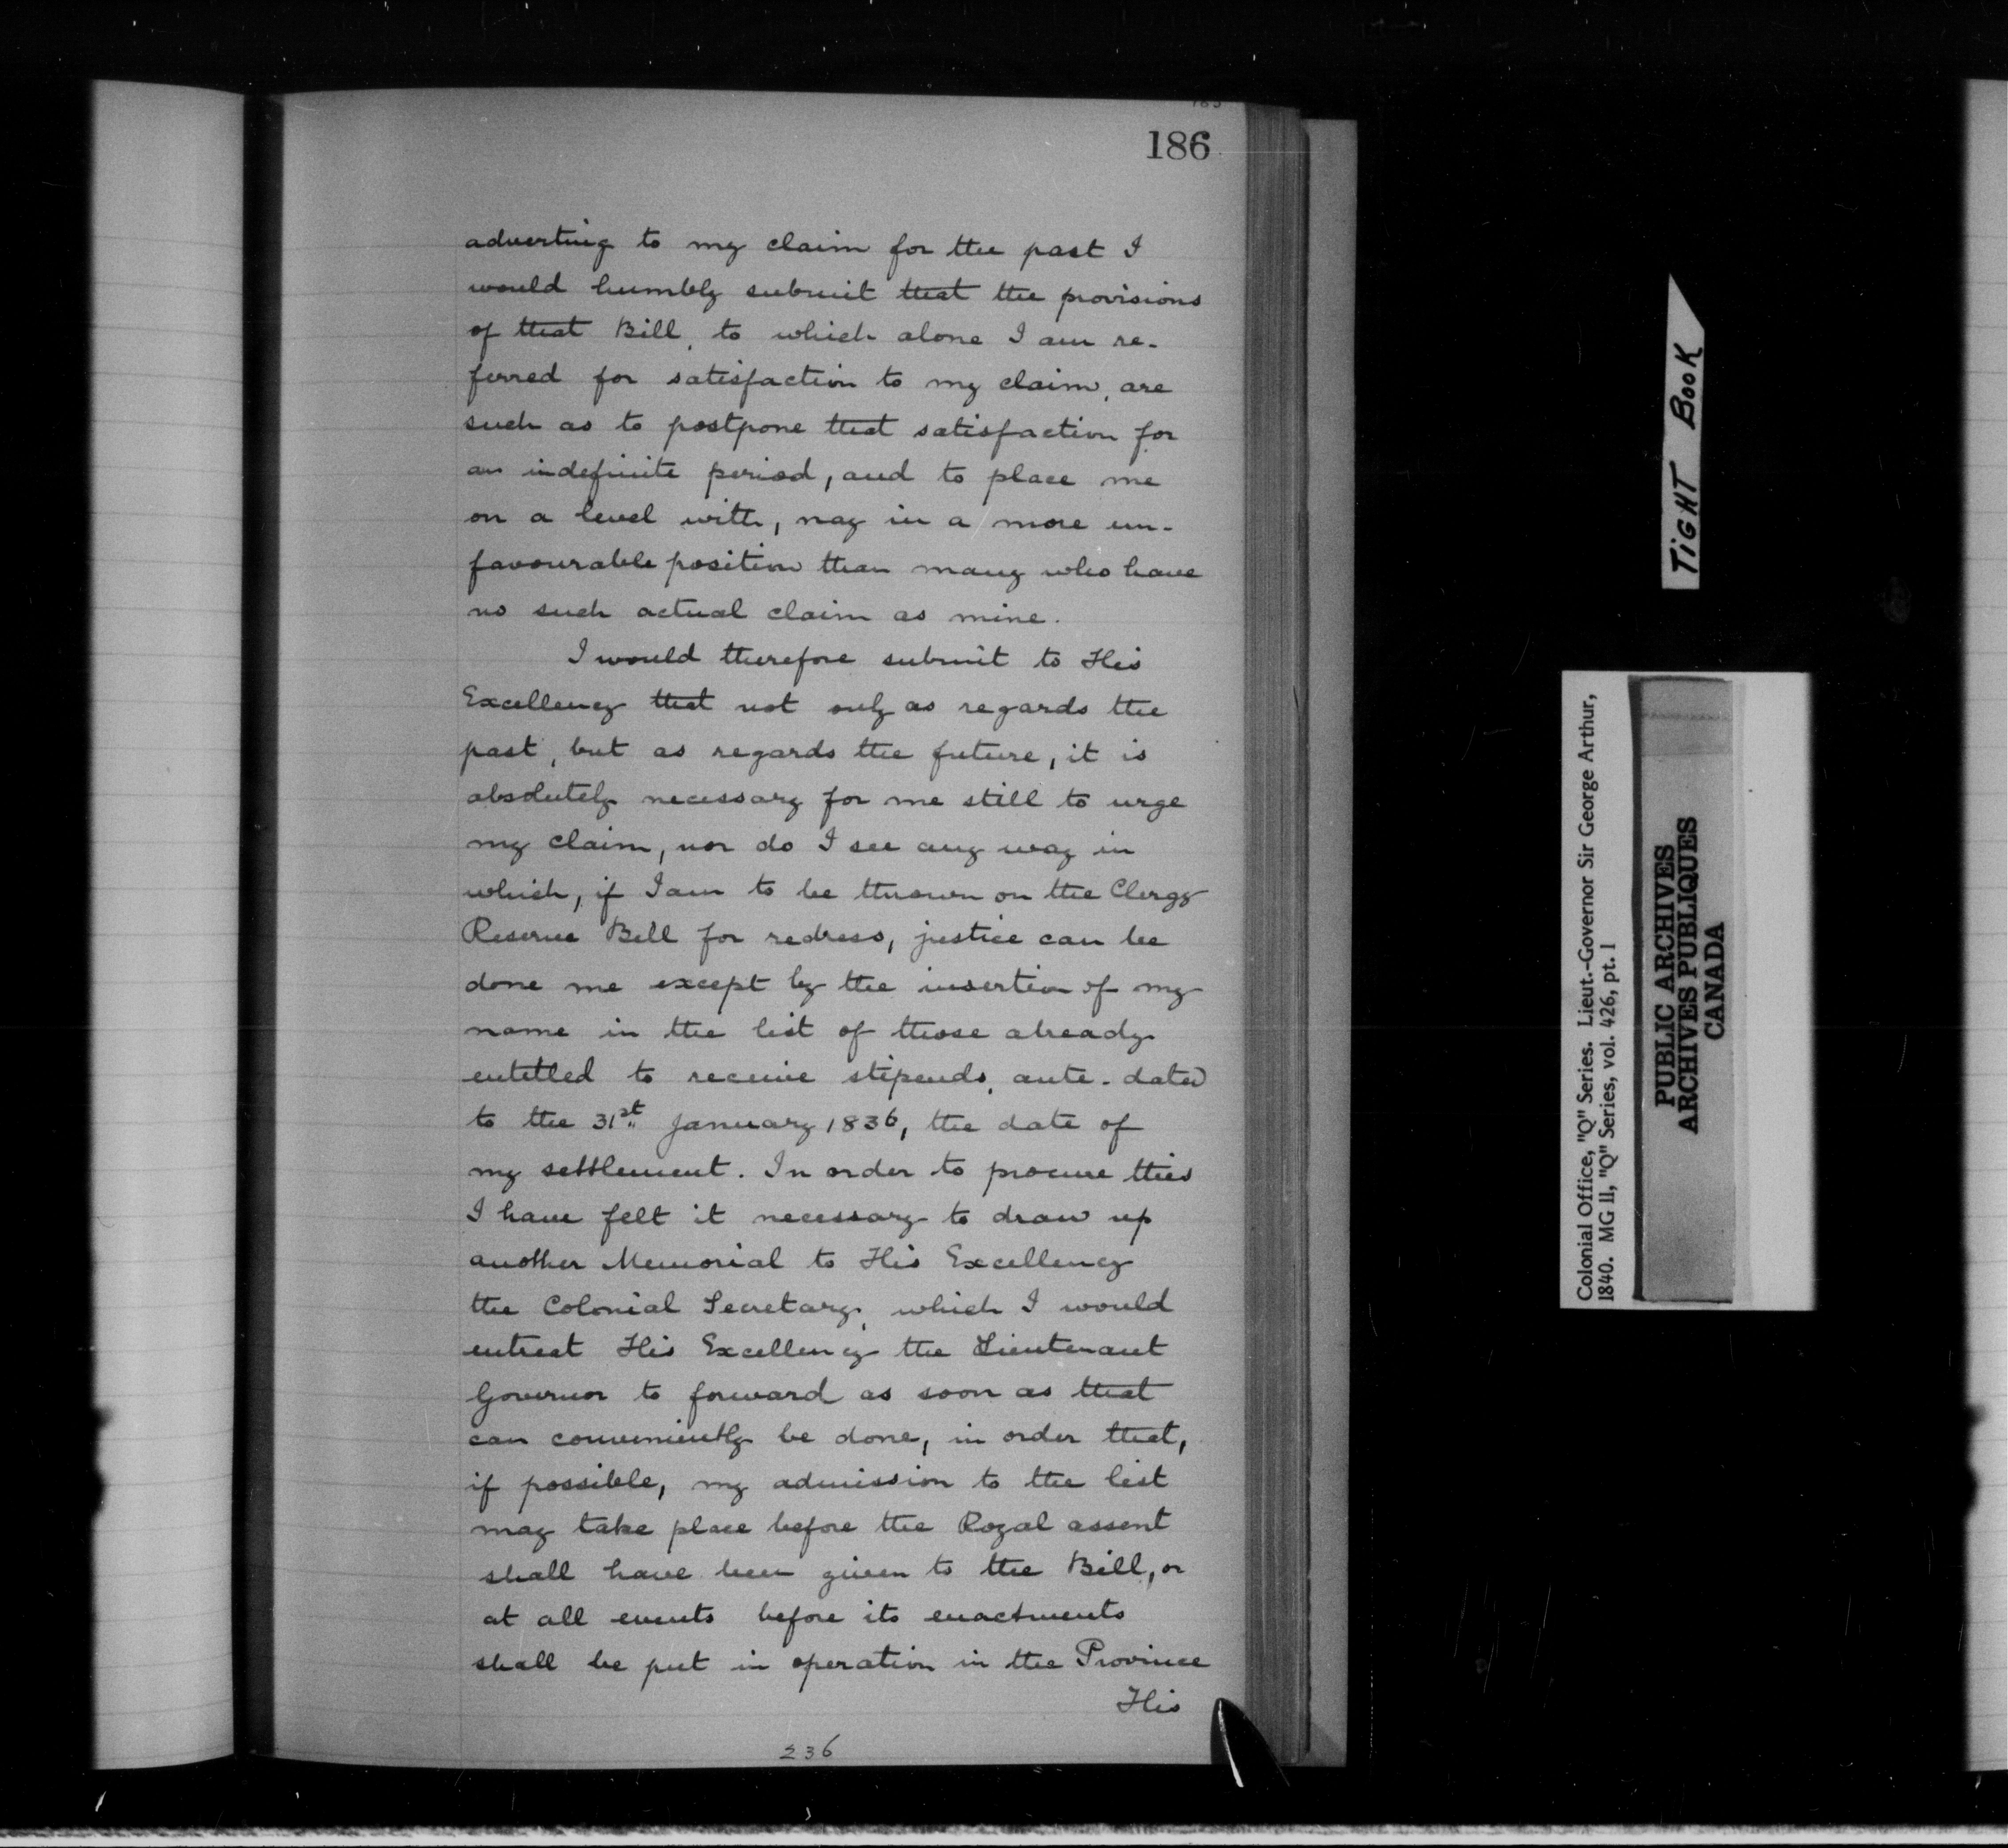 186
adverting to my claim for the past I
would humbly submit that the provisions
of that Bill, to which alone I am re-
ferred for satisfaction to my claim, are
such as to postpone that satisfaction for
an indefinite period, and to place me
on a level with, nay in a more un-
favourable position than many who have
no such actual claim as mine.
I would therefore submit to His
Excellency that not only as regards the
past, but as regards the future, it is
absolutely necessary for me still to urge
my claim, nor do I see any way in
which, if I am to be thrown on the Clergy
Reserve Bill for redress, justice can be
done me except by the insertion of my
name in the list of those already
entitled to receive stipends, ante-dated
to the 31st January 1836, the date of
my settlement. In order to procure this
I have felt it necessary to draw up
another Memorial to His Excellency
the Colonial Secretary, which I would
entreat His Excellency the Lieutenant
Governor to forward as soon as that
can conveniently be done, in order that,
if possible, my admission to the list
may take place before the Royal assent
shall have been given to the Bill, or
at all events before its enactments
shall be put in operation in the Province
His
236
TIGHT BOOK
Colonial Office, "Q" Series. Lieut.-Governor Sir George Arthur,
1840. MG 11, "Q" Series, vol. 426, pt. 1
PUBLIC ARCHIVES
ARCHIVES PUBLIQUES
CANADA